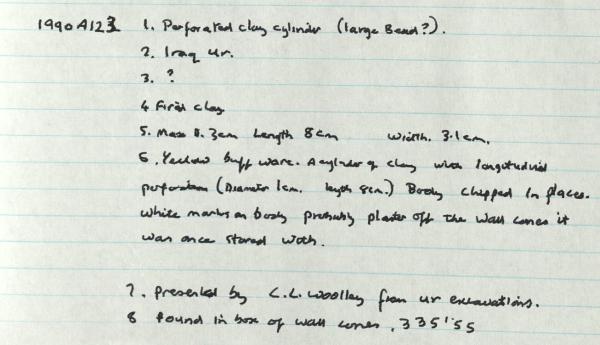 1990 A123 1. Perforated clay cylinder (large Bead?).
2. Iraq Ur.
3. ?
4 Fired clay
5. Max 8.3cm Length 8cm Width. 3.1cm.
6. Yellow buff ware. A cylinder of clay with longitudinal
perforation (Diameter 1cm. length 8cm.) Body chipped in places.
White marks on body probably plaster off the wall cones it
was once stored with.
7. Presented by C.L. Woolley from Ur excavations.
8 Found in box of wall cones, 335'55